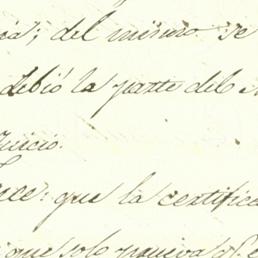 del mismo se
debió la parte del
Juicio.
que la certific
que solo prueva